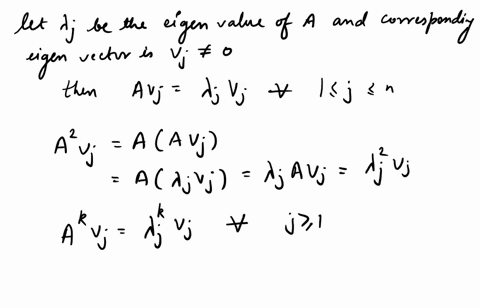 let λⱼ be the eigen value of A and correspondiy
eigen vector is vⱼ ≠ 0
then Avⱼ = λⱼ vⱼ ∀ 1 ≤ j ≤ n
A² vⱼ = A ( A vⱼ )
= A ( λⱼ vⱼ ) = λⱼ A vⱼ = λⱼ² vⱼ
Aᵏ vⱼ = λⱼᵏ vⱼ ∀ j ⩾ 1